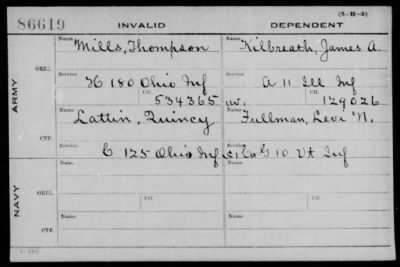 (3-H-5)
86619 INVALID DEPENDENT
Name Mills, Thompson Name Kilbreath, James A.
ORIG.
Service H 180 Ohio Inf Service A 11 Ill Inf
ARMY
Ctf. 534365 W. Ctf. 129026
Name Lattin, Quincy Name Fullman, Levi N.
CTF.
Service C 125 Ohio Inf Co G 10 Vt Inf
Name Name
ORIG.
NAVY
Service Ctf. Service Ctf.
Name Name
CTF.